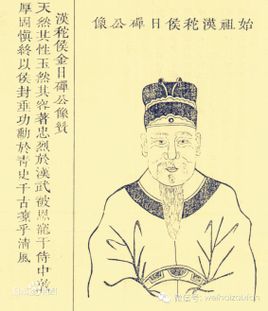 始祖漢秺侯日磾公像
漢秺侯金日磾公像贊
天然其性玉然其容著忠烈於漢武被恩寵于侍中
厚固慎終以侯封垂功勳於青史千古乎清風
微信号: weihaizabian